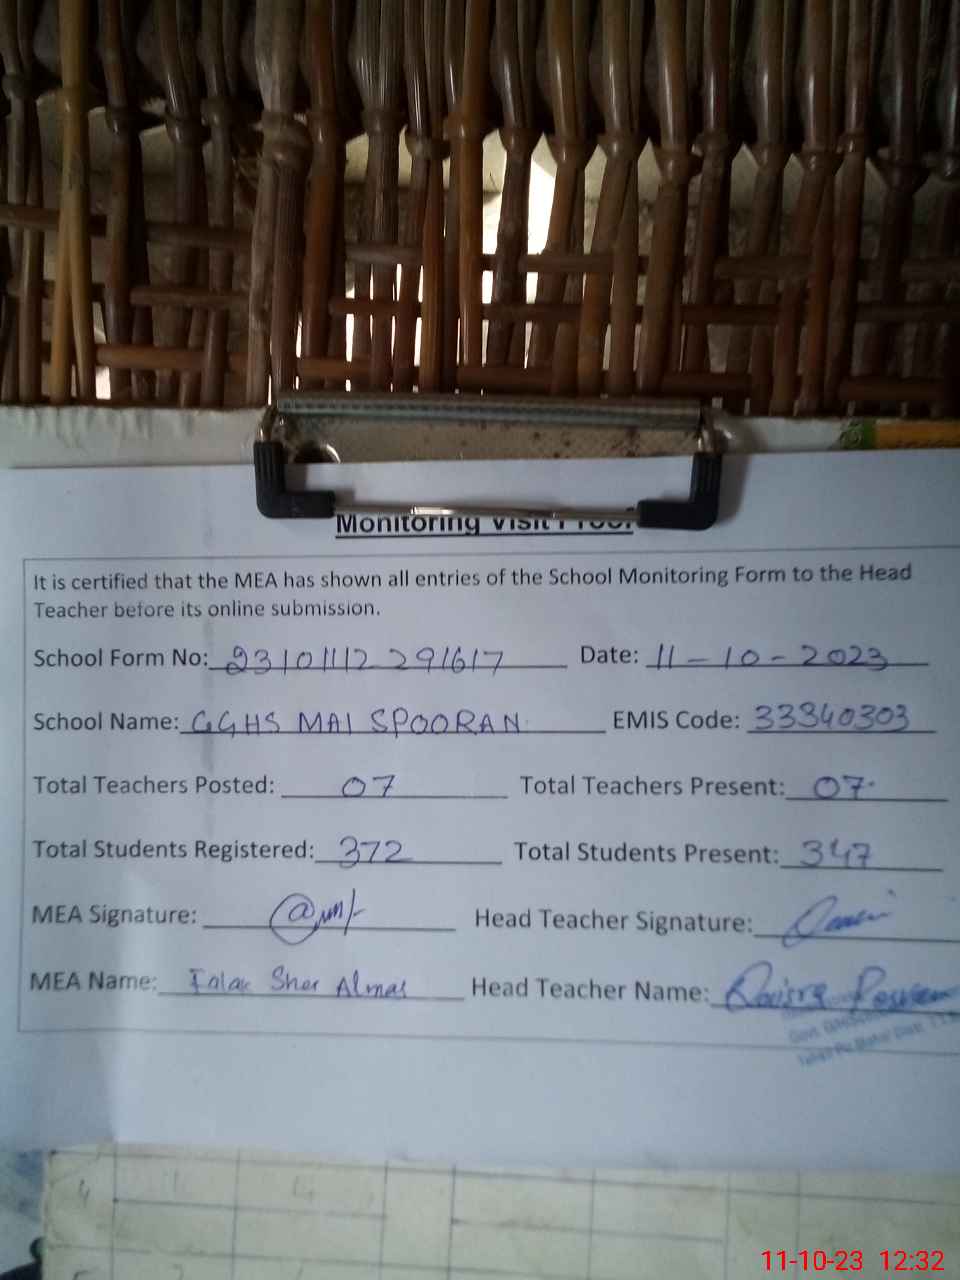 Monitoring Visit Proof
It is certified that the MEA has shown all entries of the School Monitoring Form to the Head
Teacher before its online submission.
School Form No: 23101112291617 Date: 11-10-2023
School Name: GGHS MAI SPOORAN EMIS Code: 33340303
Total Teachers Posted: 07 Total Teachers Present: 07
Total Students Registered: 372 Total Students Present: 347
MEA Signature: Head Teacher Signature:
MEA Name: Falak Sher Almas Head Teacher Name:
11-10-23 12:32